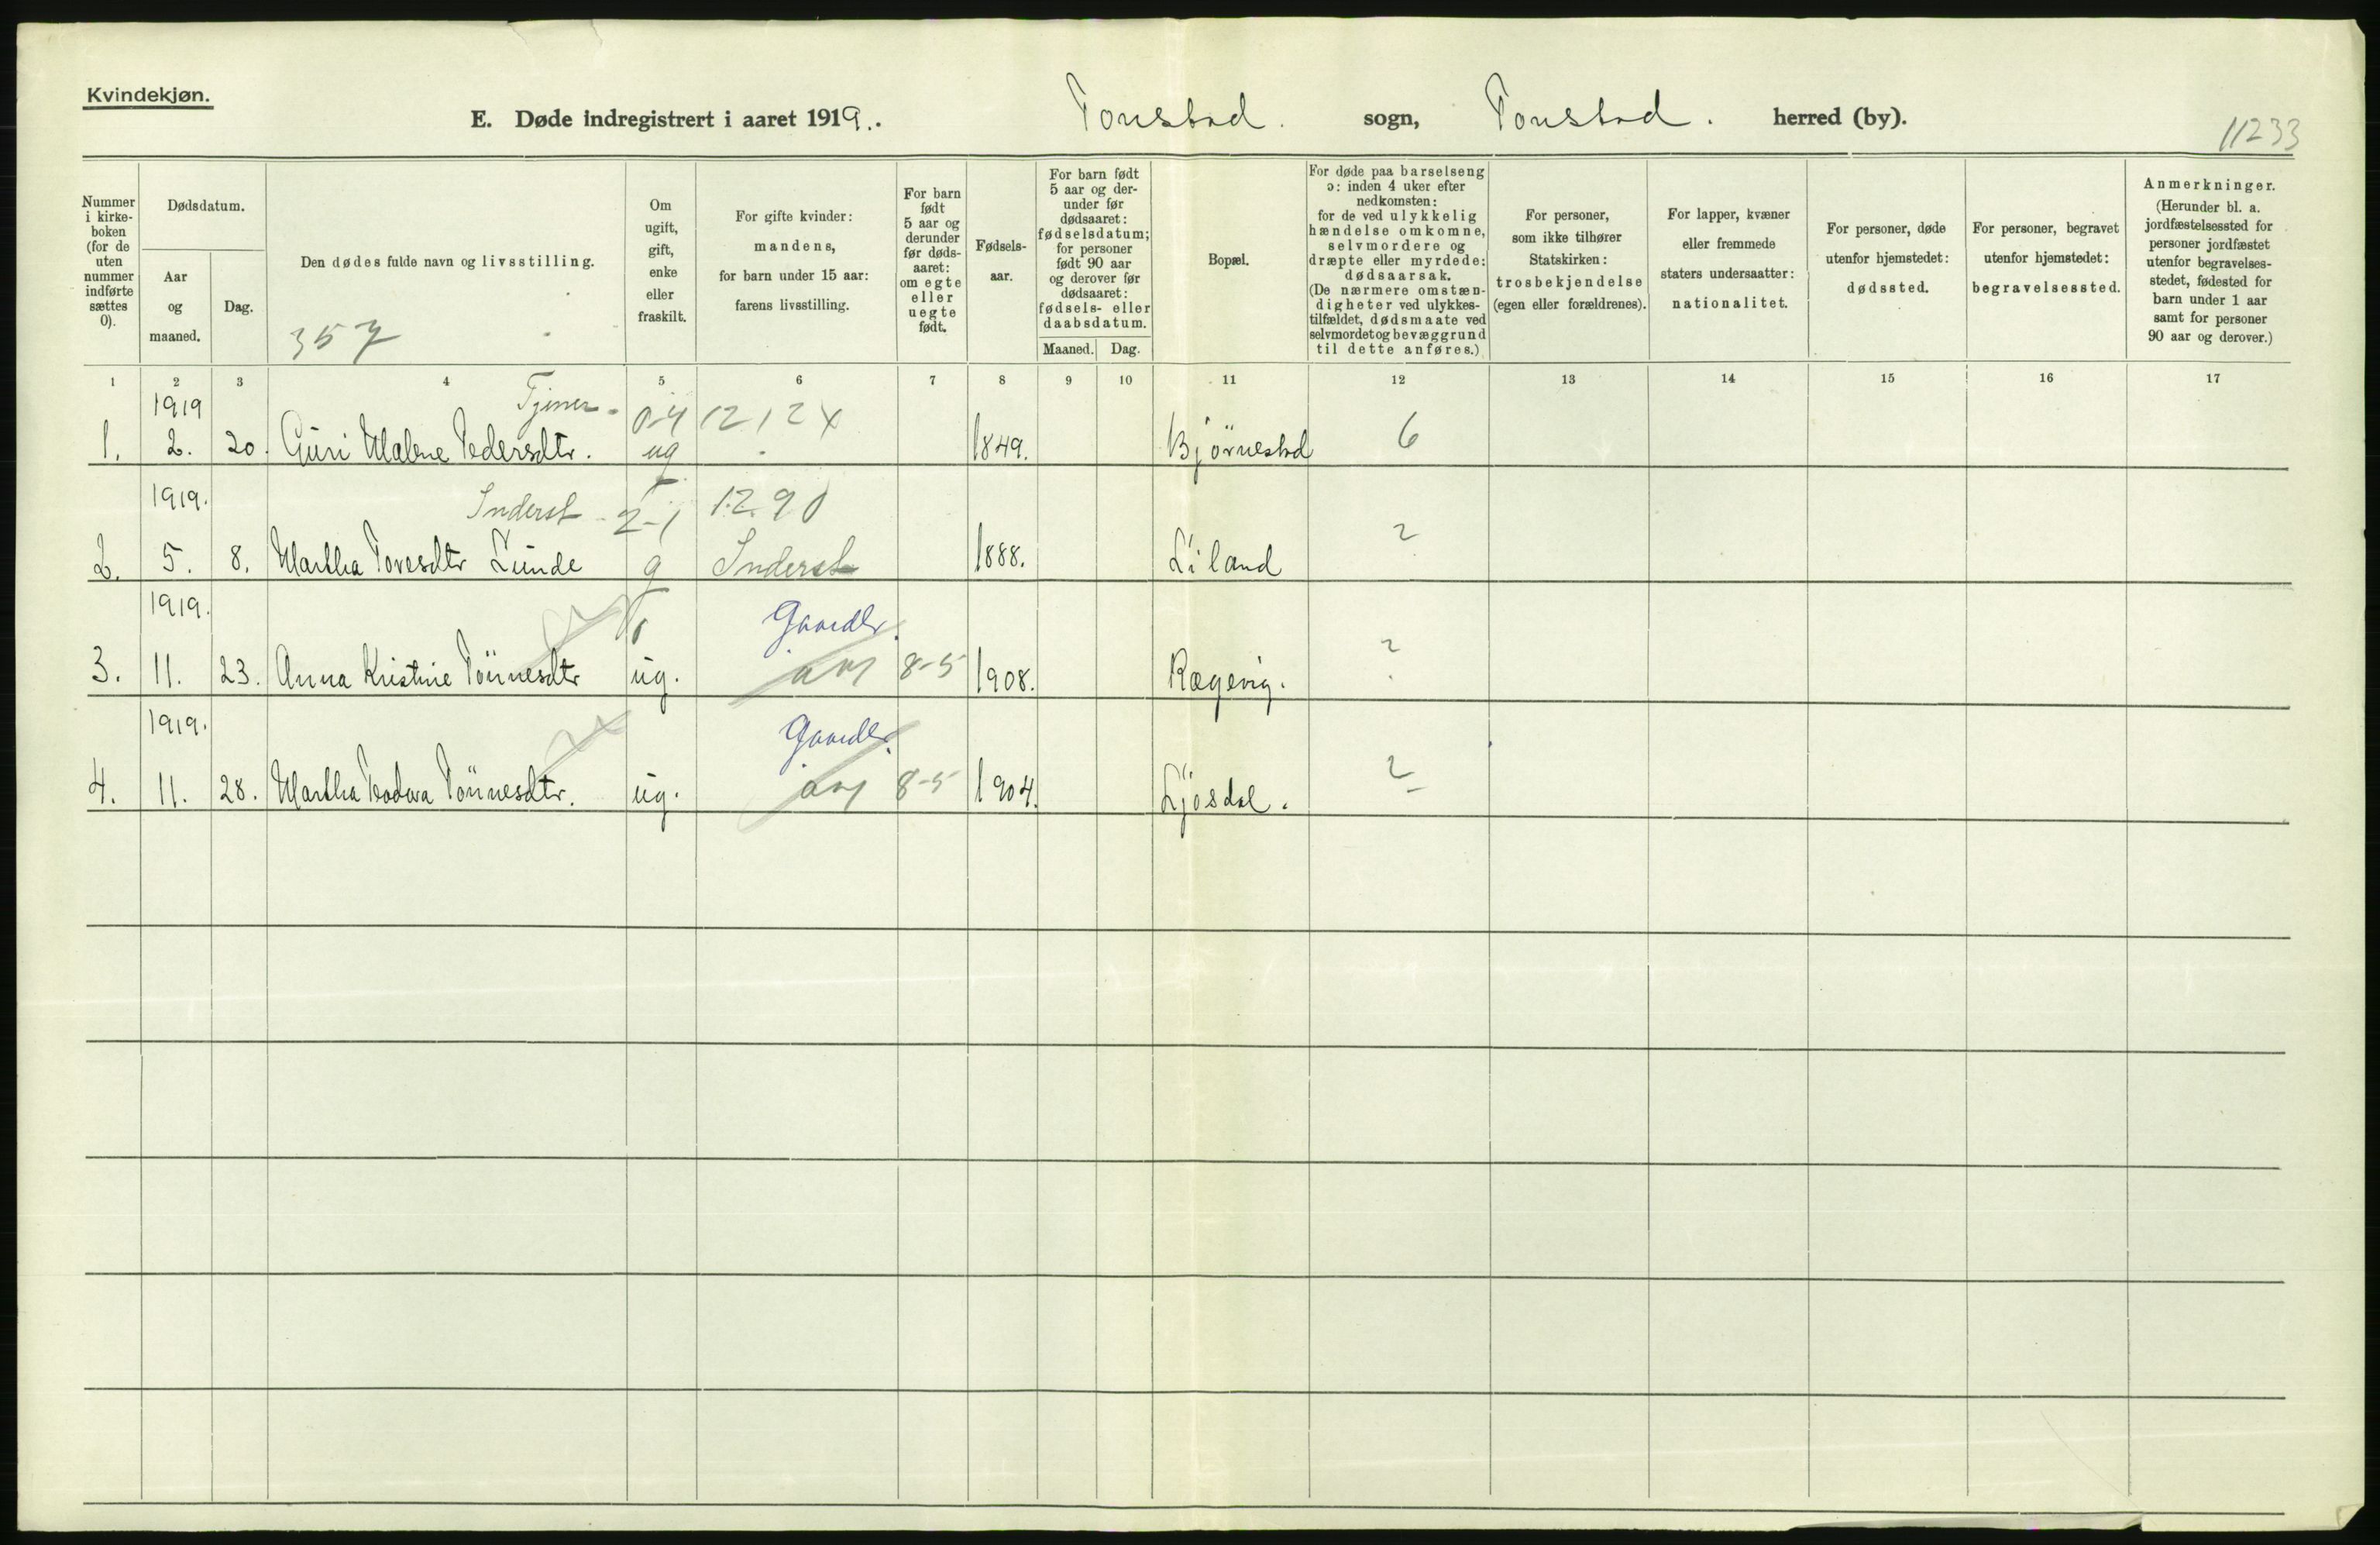 Kvindekjøn.
E. Døde indregistrert i aaret 1919. Tonstad. sogn, Tonstad. herred (by).
11233
Nummer i kirke-boken (for de uten nummer indførte sættes 0).
Dødsdatum.
Aar og maaned.
Dag.
Den dødes fulde navn og livsstilling.
357
Om ugift, gift, enke eller fraskilt.
For gifte kvinder: mandens, for barn under 15 aar: farens livsstilling.
For barn født 5 aar og derunder før døds-aaret: om egte eller uegte født.
Fødsels-aar.
For barn født 5 aar og der-under før dødsaaret: fødselsdatum; for personer født 90 aar og derover før dødsaaret: fødsels- eller daabsdatum.
Maaned. Dag.
Bopæl.
For døde paa barselseng ɔ: inden 4 uker efter nedkomsten: for de ved ulykkelig hændelse omkomne, selvmordere og dræpte eller myrdede: dødsaarsak. (De nærmere omstæn-digheter ved ulykkes-tilfældet, dødsmaate ved selvmordet og bevæggrund til dette anføres.)
For personer, som ikke tilhører Statskirken: trosbekjendelse (egen eller forældrenes).
For lapper, kvæner eller fremmede staters undersaatter: nationalitet.
For personer, døde utenfor hjemstedet: dødssted.
For personer, begravet utenfor hjemstedet: begravelsessted.
Anmerkninger. (Herunder bl. a. jordfæstelsessted for personer jordfæstet utenfor begravelses-stedet, fødested for barn under 1 aar samt for personer 90 aar og derover.)
1 2 3 4 5 6 7 8 9 10 11 12 13 14 15 16 17
1919 Tjener 0-4 1212 X
1. 2. 20. Guri Malene Pedersdtr. ug 1849. Bjørnestad 6
1919. Inderst 2-1 1290
2. 5. 8. Martha Tovesdtr Lunde g Inderst 1888. Liland 2
1919. Gaardbr.
3. 11. 23. Anna Kristine Tönnesdtr ug. 8-5 1908. Rægevig. 2
1919. Gaardbr.
4. 11. 28. Martha Teodora Tönnesdtr. ug. 8-5 1904. Ljosdal. 2